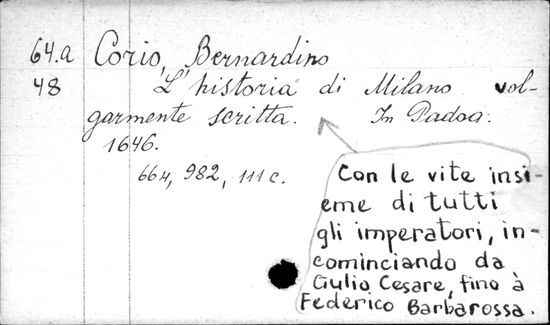 64.a Corio, Bernardino
48 L'historia di Milano vol-
garmente scritta. In Padoa.
1646.
664, 982, 111 c.
Con le vite insi-
eme di tutti
gli imperatori, in-
cominciando da
Giulio Cesare, fino à
Federico Barbarossa.